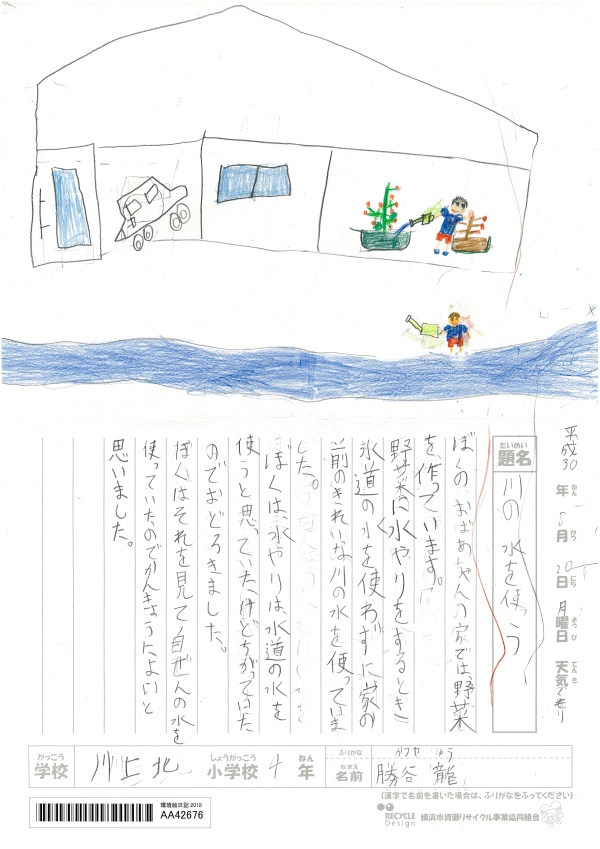 平成30年 8月 20日 月曜日 天気 くもり
ねん がつ にち ようび てんき
だいめい
題名 川の水を使う
ぼくの、おばあちゃんの家では、野菜
を作っています。
野菜に水やりをするとき
水道の水を使わずに家の
前のきれいな川の水を使っていま
した。
ぼくは、水やりは、水道の水を
使うと思っていたけどちがっていた
のでおどろきました。
ぼくはそれを見て自ぜんの水を
使っていたのでかんきょうによいと
思いました。
がっこう しょうがっこう ねん
学校 川上北 小学校 4年
ふりがな かつや りゅう
なまえ
名前 勝谷 龍
(漢字で名前を書いた場合は、ふりがなをふってください)
環境絵日記 2018
AA42676
RECYCLE Design 横浜市資源リサイクル事業協同組合